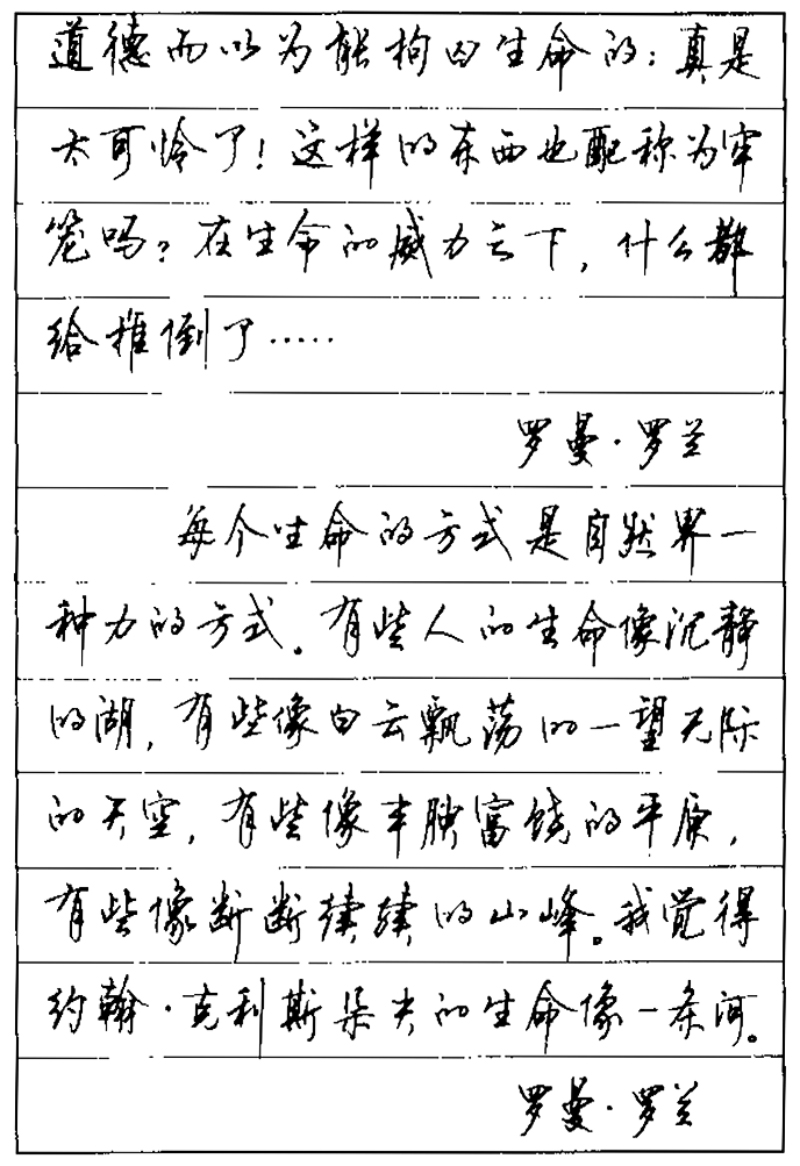 道德而以为能拘囚生命的：真是
太可怜了！这样的东西也配称为牢
笼吗？在生命的威力之下，什么都
给推倒了……
罗曼·罗兰
每个生命的方式是自然界一
种力的方式。有些人的生命像沉静
的湖，有些像白云飘荡的一望无际
的天空，有些像丰腴富饶的平原，
有些像断断续续的山峰。我觉得
约翰·克利斯朵夫的生命像一条河。
罗曼·罗兰